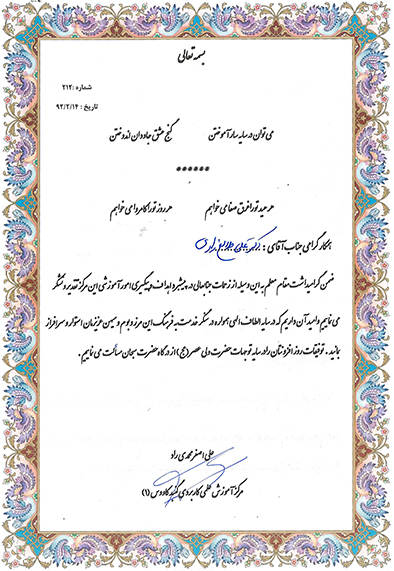 بسمه تعالی
شماره : ۲۱۲
تاریخ : ۹۲/۲/۱۴
می توان در سایه سار آموختن گنج عشق جاودان اندوختن
******
هر عید تو را غرق صفا می خواهم هر روز تو را کامروا می خواهم
همکار گرامی جناب آقای :
ضمن گرامیداشت مقام معلم به این وسیله از زحمات جنابعالی در پیشبرد اهداف و پیگیری امور آموزشی این مرکز تقدیر و تشکر
می نماییم و امید آن داریم که در سایه الطاف الهی همواره در سنگر خدمت به فرهنگ این مرز و بوم و میهن عزیزمان استوار و سرافراز
بمانید . توفیقات روز افزونتان را در سایه توجهات حضرت ولی عصر (عج) از درگاه حضرت سبحان مسألت می نماییم .
علی اصغر محمدی راد
مرکز آموزش علمی کاربردی گنبد کاووس (۱)